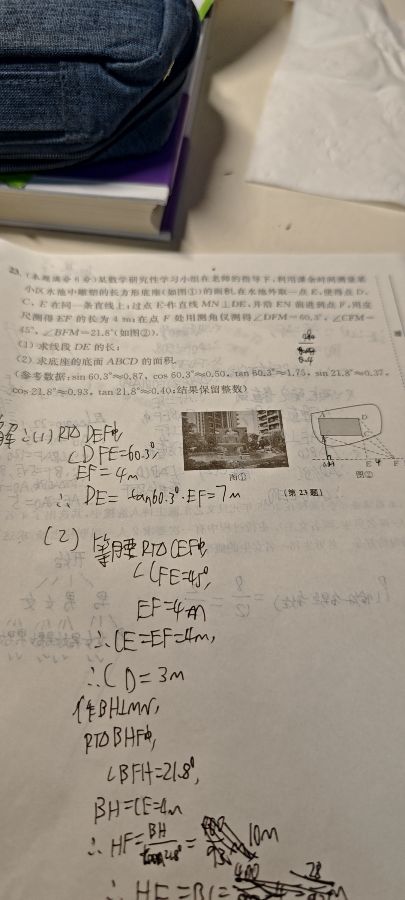 23. (本题满分6分)某数学研究性学习小组在老师的指导下,利用课余时间测量某
小区水池中雕塑的长方形底座(如图①)的面积,在水池外取一点E,使得点D、
C、E在同一条直线上;过点E作直线MN⊥DE,并沿EN前进到点F,用皮
尺测得EF的长为4m;在点F处用测角仪测得∠DFM=60.3°,∠CFM=
45°,∠BFM=21.8°(如图②).
(1)求线段DE的长;
(2)求底座的底面ABCD的面积.
(参考数据:sin 60.3°≈0.87,cos 60.3°≈0.50,tan 60.3°≈1.75,sin 21.8°≈0.37,
cos 21.8°≈0.93,tan 21.8°≈0.40;结果保留整数)
图① (第23题) 图②
A D
E F
解:(1) Rt△DEF中,
∠DFE=60.3°
EF=4m
∴ DE=tan60.3°·EF=7m
(2) 等腰Rt△CEF中,
∠CFE=45°,
EF=4m
∴CE=EF=4m,
∴CD=3m
作BH⊥MN,
Rt△BHF中,
∠BFH=21.8°,
BH=CE=4m
∴HF=BH/tan21.8°= 10m
∴HE=BC=